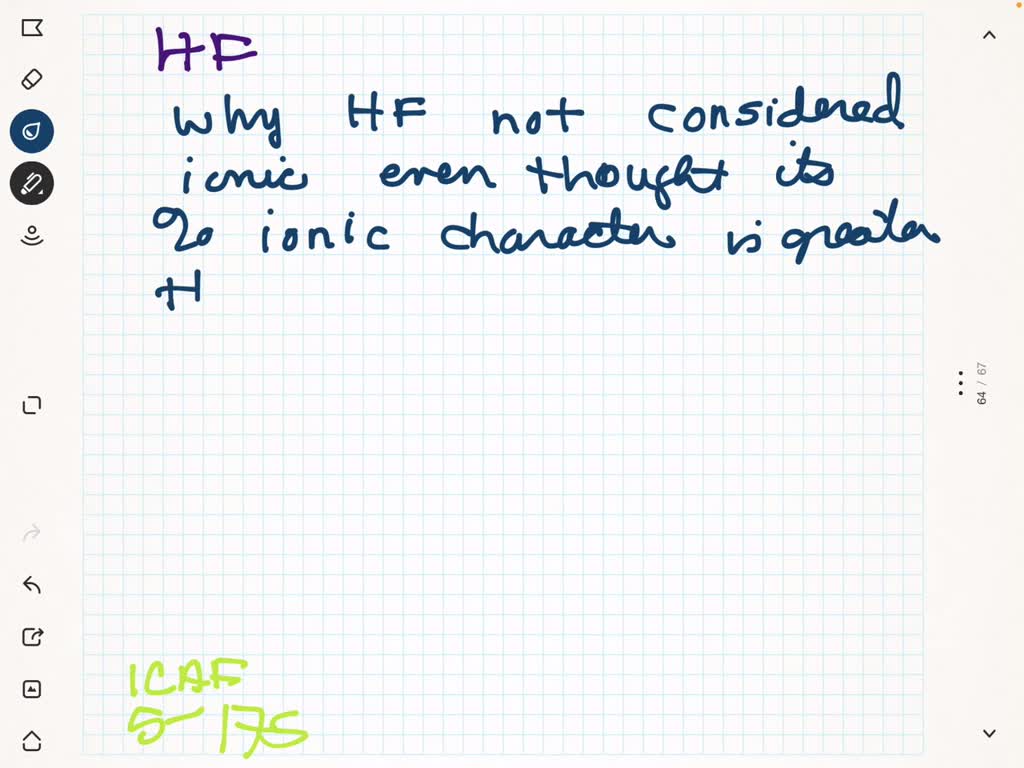 HF
why HF not considered
ionic even thought its
% ionic character is greater
H
64 / 67
ICAF
5-175